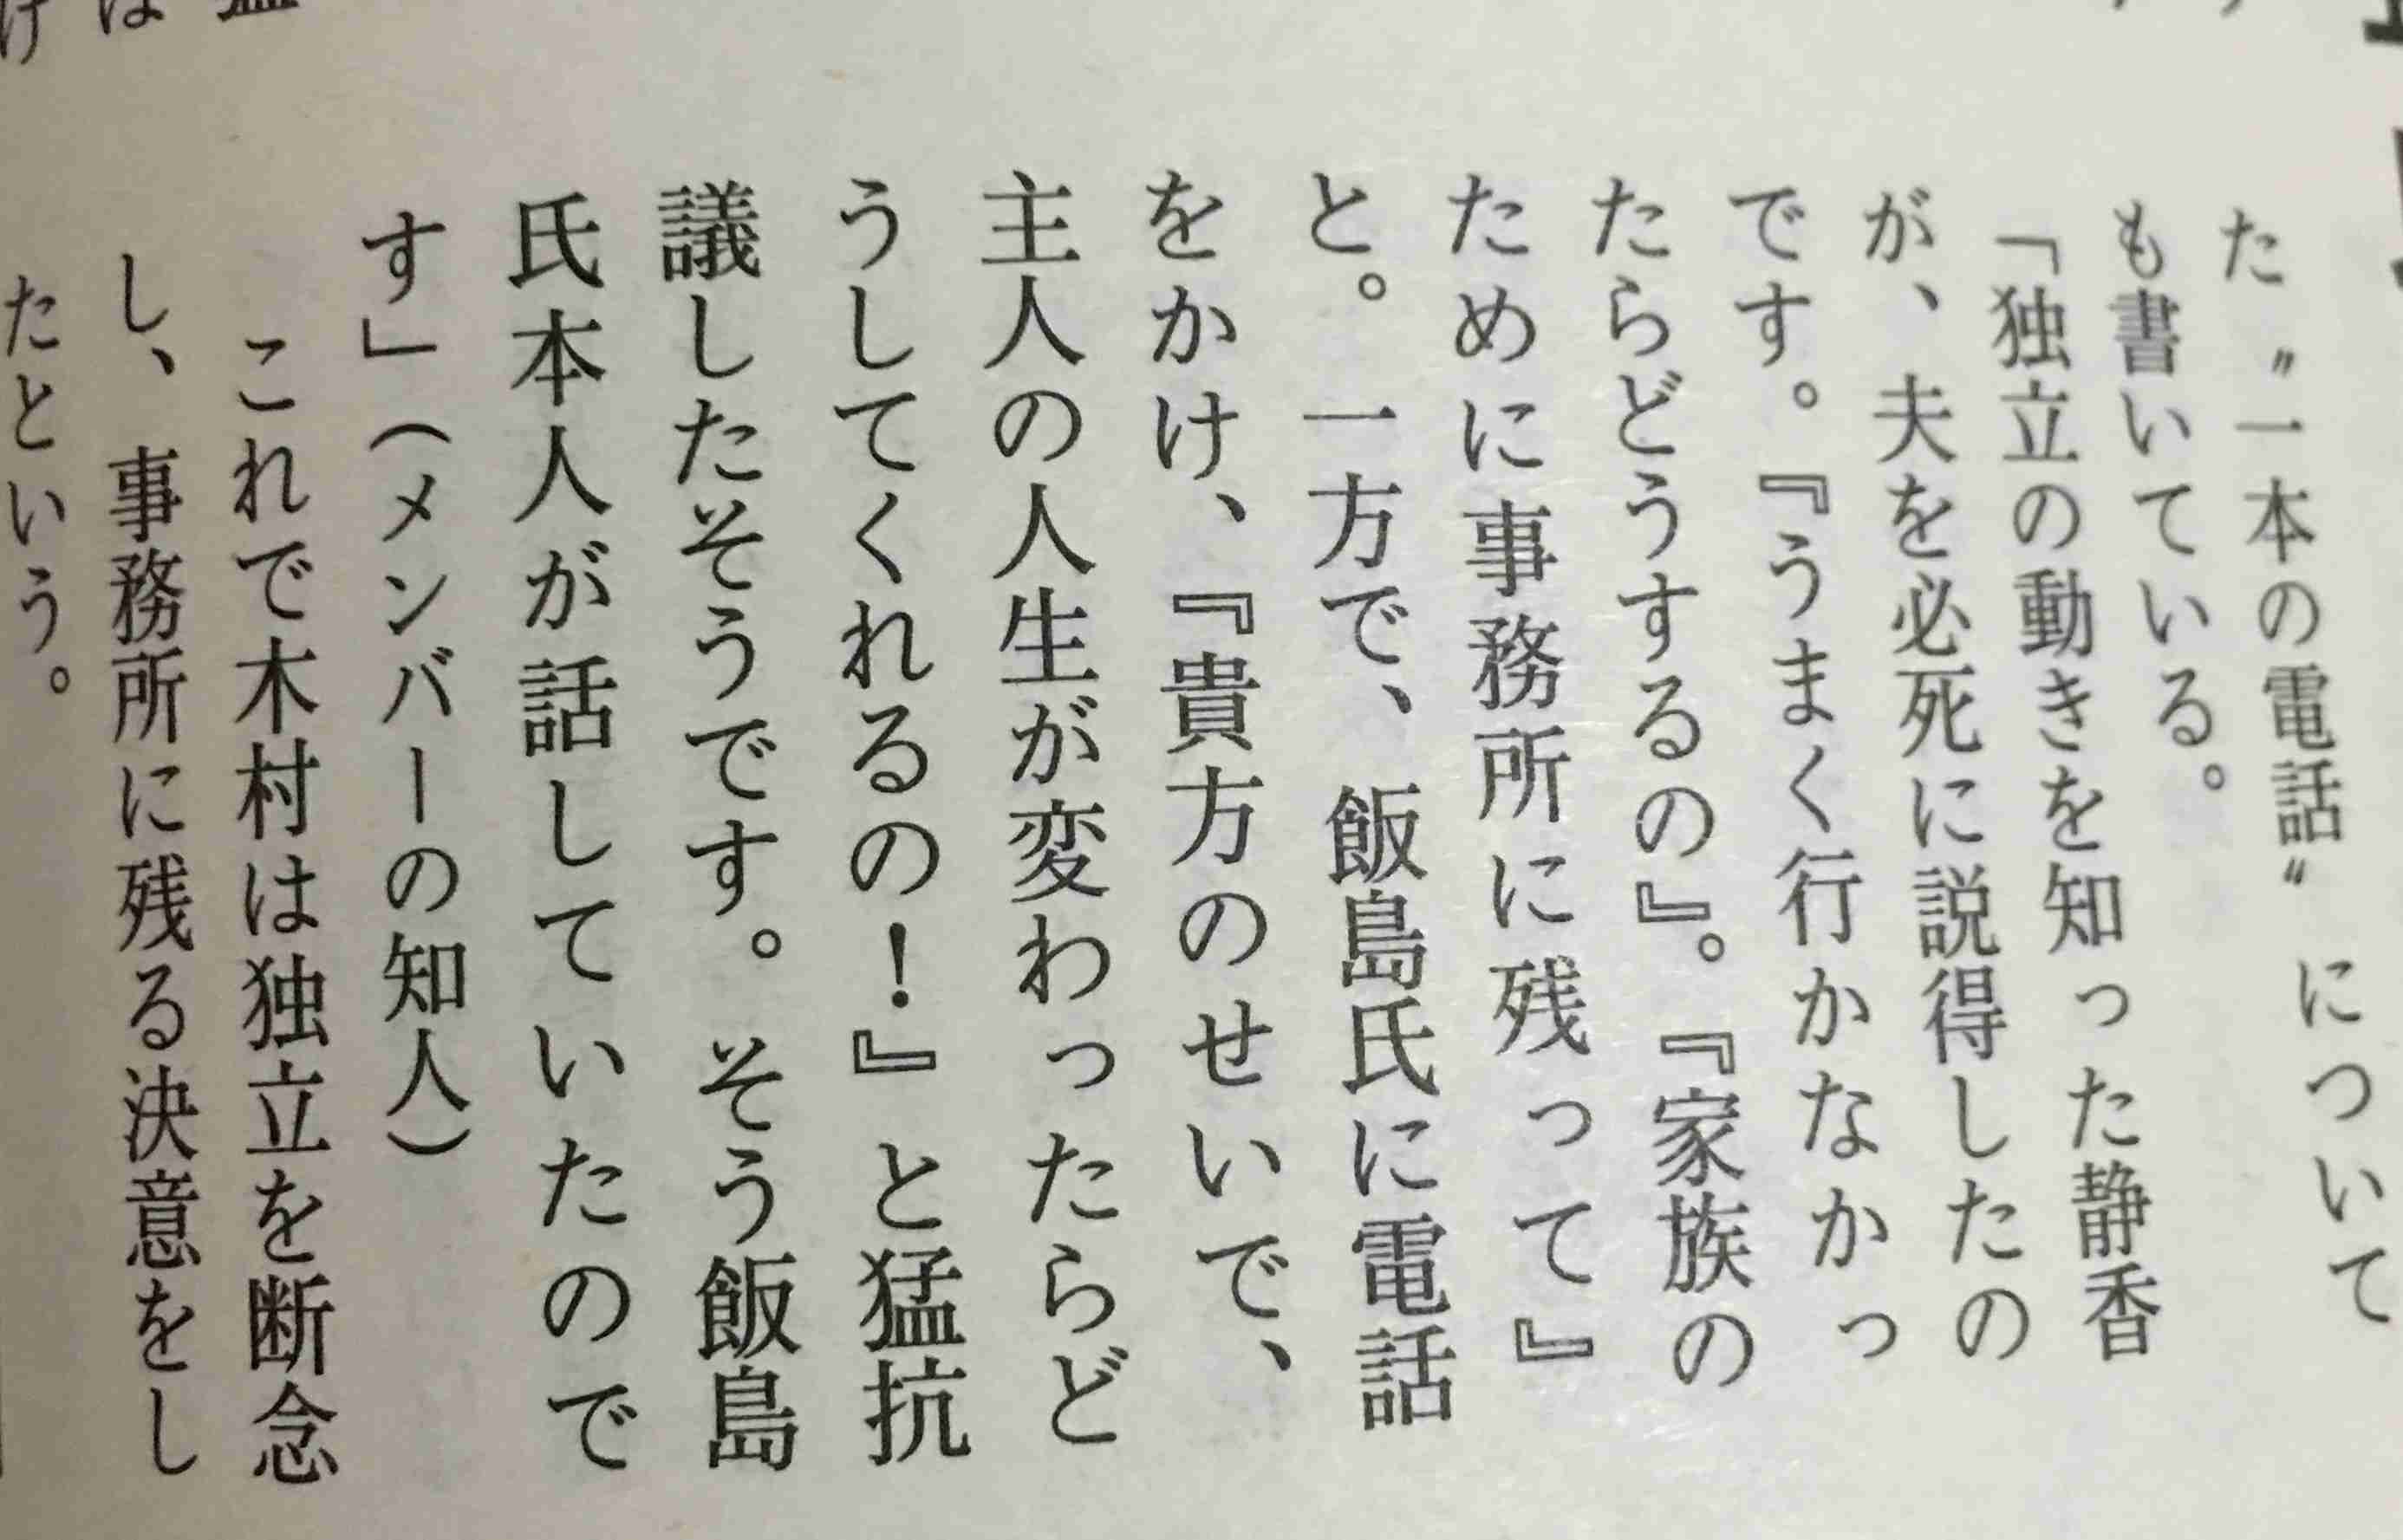 た〝一本の電話〟について
も書いている。
「独立の動きを知った静香
が、夫を必死に説得したの
です。『うまく行かなかっ
たらどうするの』。『家族の
ために事務所に残って』
と。一方で、飯島氏に電話
をかけ、『貴方のせいで、
主人の人生が変わったらど
うしてくれるの!』と猛抗
議したそうです。そう飯島
氏本人が話していたので
す」(メンバーの知人)
これで木村は独立を断念
し、事務所に残る決意をし
たという。